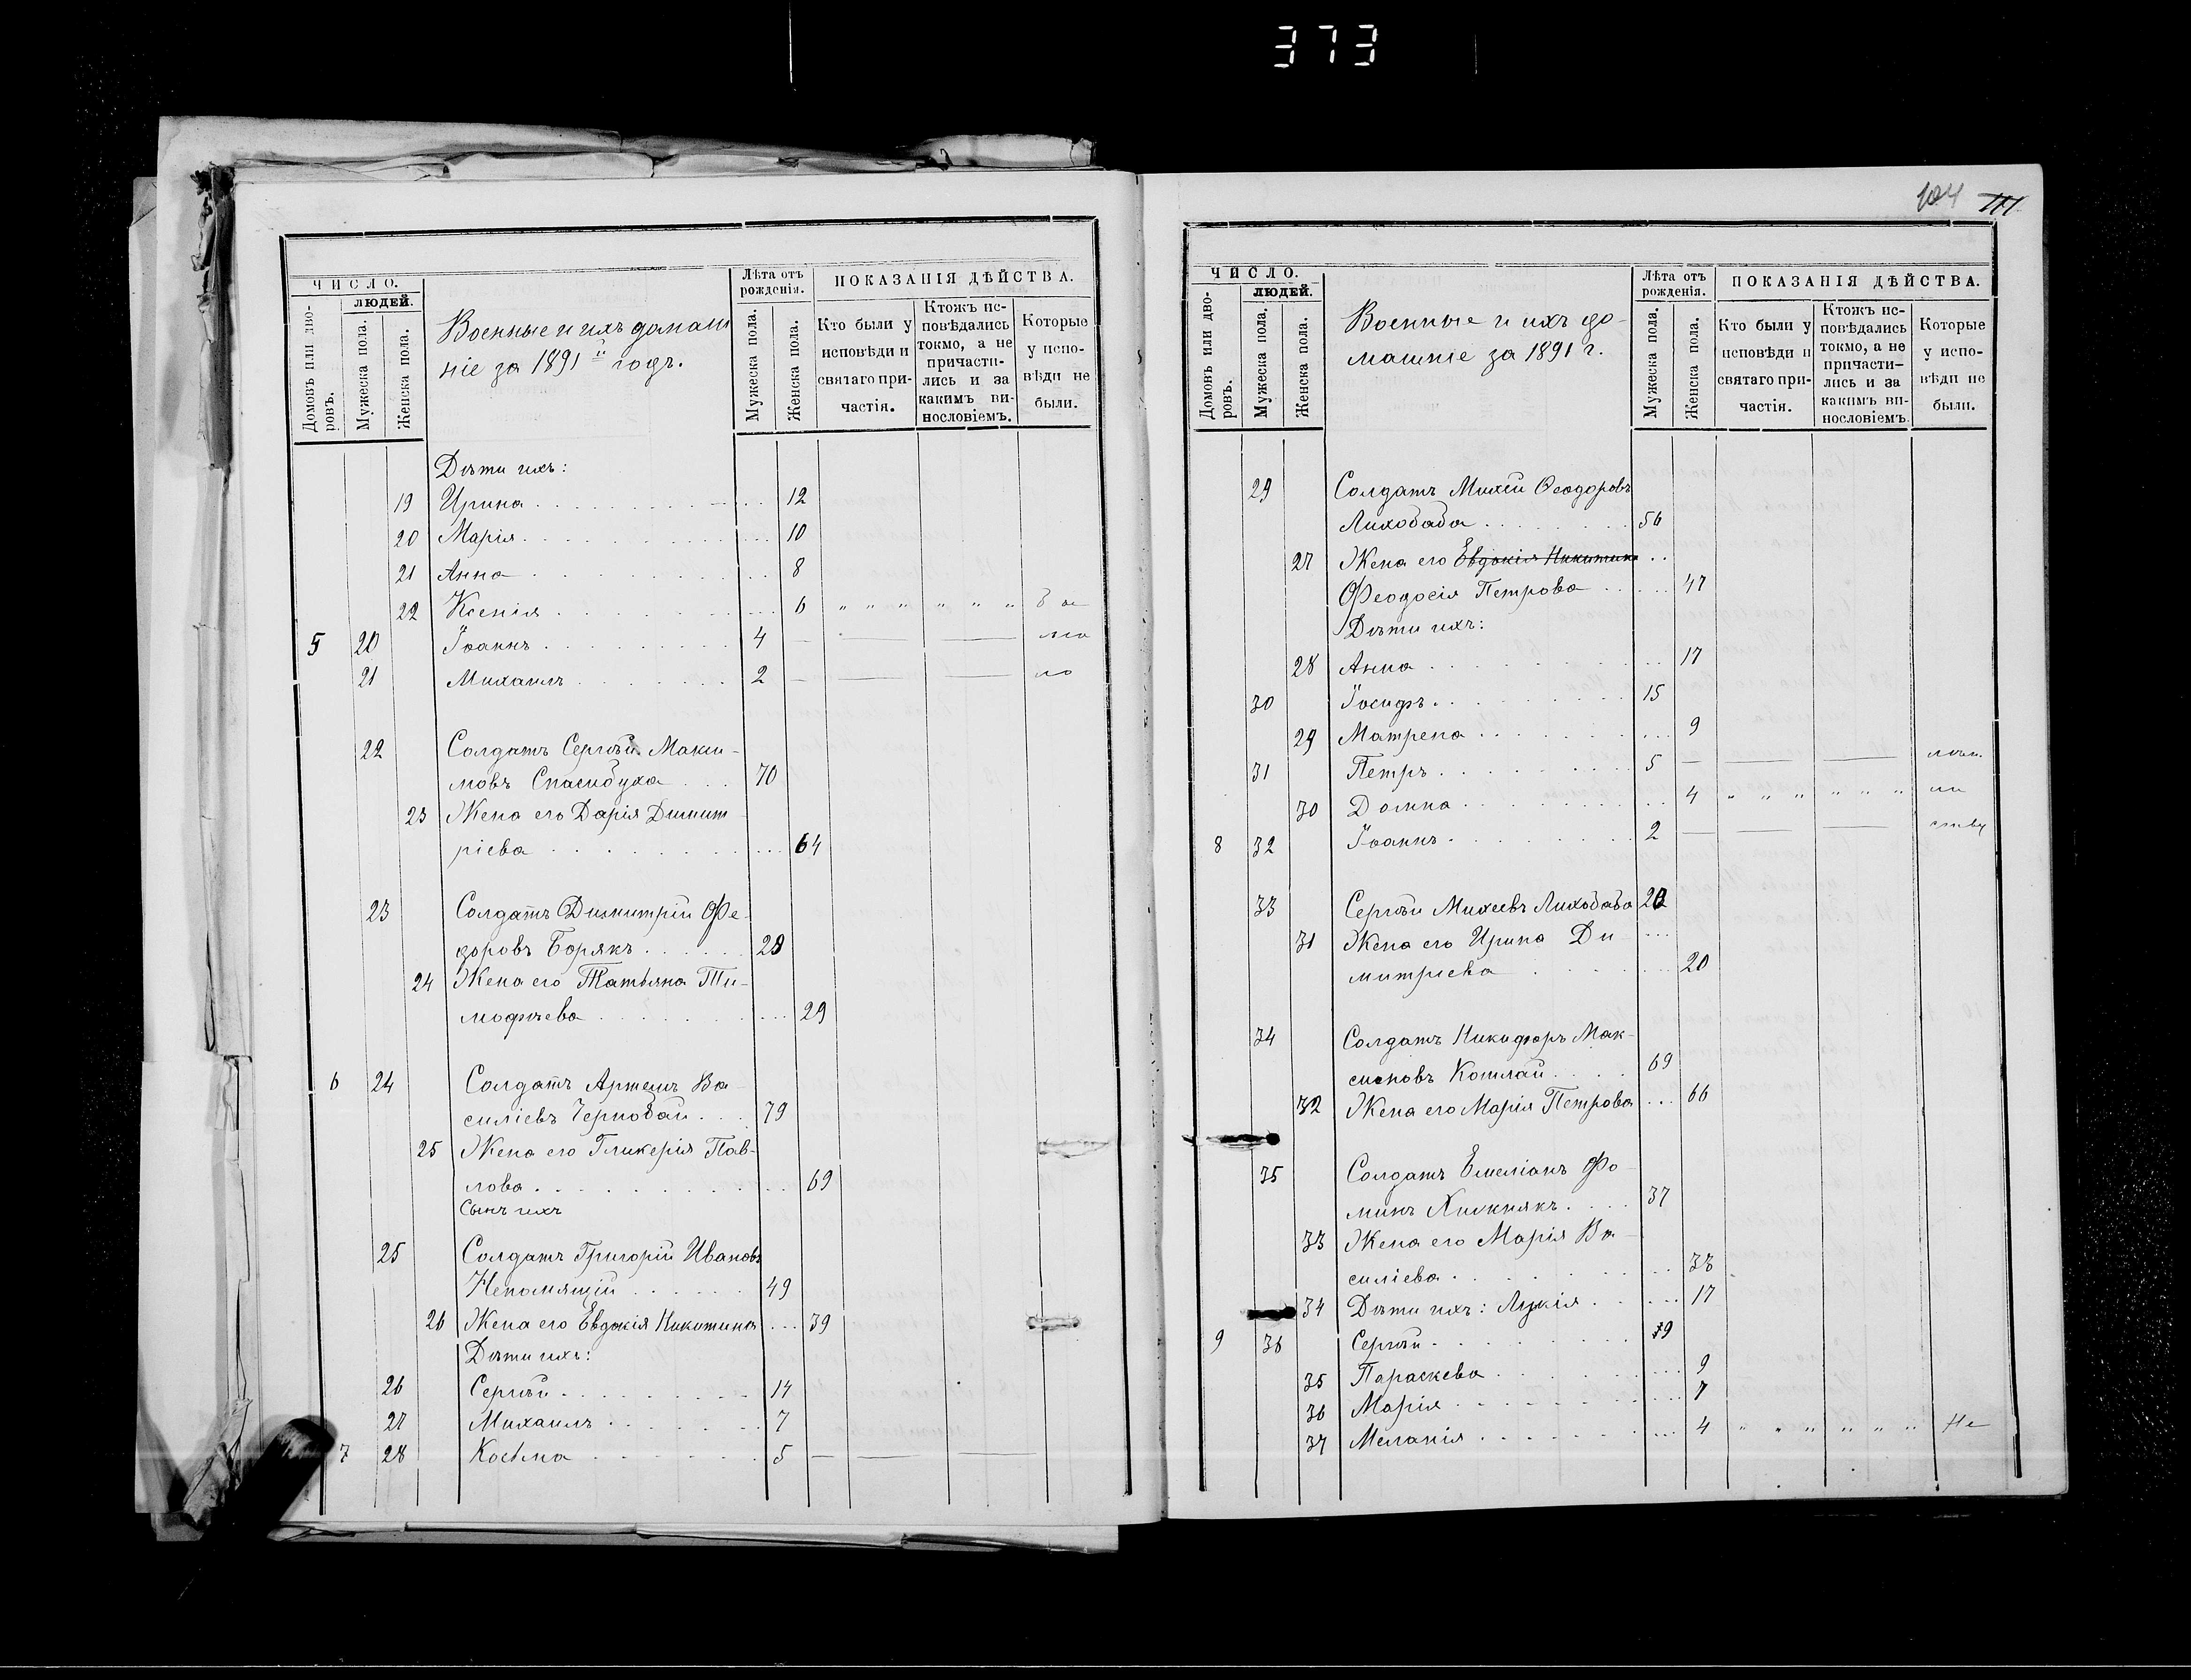 373
104
ЧИСЛО.
ЛЮДЕЙ.
Домовъ или дворовъ.
Мужеска пола.
Женска пола.
Военные и ихъ домаш
ніе за 1891й годъ.
Лѣта отъ рожденія.
Мужеска пола.
Женска пола.
ПОКАЗАНІЯ ДѢЙСТВА.
Кто были у исповѣди и святаго при-частія.
Ктожъ ис-повѣдались токмо, а не причасти-лись и за какимъ ви-нословіемъ.
Которые у испо-вѣди не были.
Дѣти ихъ:
19 Ирина 12
20 Марія 10
21 Анна 8
22 Ксенія 6 " " " " " "
5 20 Іоаннъ 4 —
21 Михаилъ 2 —
22 Солдатъ Сергѣй Макси-
мовъ Спасибуха 70
23 Жена его Дарія Димит
ріева 64
23 Солдатъ Димитрій Фе-
доровъ Борякъ 28
24 Жена его Татьяна Ти-
мофѣева 29
6 24 Солдатъ Артемъ Ва-
силіевъ Чернобай 79
25 Жена его Гликерія Пав-
лова 69
Сынъ ихъ
25 Солдатъ Григорій Ивановъ
Непомящій 49
26 Жена его Евдокія Никитина 39
Дѣти ихъ:
26 Сергѣй 14
27 Михаилъ 7
7 28 Косьма 5 —
ЧИСЛО.
ЛЮДЕЙ.
Домовъ или дво-ровъ.
Мужеска пола.
Женска пола.
Военные и ихъ до-
машніе за 1891 г.
Лѣта отъ рожденія.
Мужеска пола.
Женска пола.
ПОКАЗАНІЯ ДѢЙСТВА.
Кто были у исповѣди и святаго при-частія.
Ктожъ ис-повѣдались токмо, а не причасти-лись и за какимъ ви-нословіемъ.
Которые у испо-вѣди не были.
29 Солдатъ Михей Ѳеодоровъ
Лиходаба 56
27 Жена его Евдокія Никитина
Феодосія Петрова 47
Дѣти ихъ:
28 Анна 17
30 Іосифъ 15
29 Матрена 9
31 Петръ 5 —
30 Домна 4 " " " " " "
8 32 Іоаннъ 2 —
33 Сергѣй Михеевъ Лиходаба
31 Жена его Ирина Ди-
митріева 20
34 Солдатъ Никифоръ Мак-
симовъ Кошлай 69
32 Жена его Марія Петрова 66
35 Солдатъ Емеліанъ Фо-
минъ Хижнякъ 37
33 Жена его Марія Ва-
силіева 38
34 Дѣти ихъ: Лукія 17
9 36 Сергѣй
35 Параскева 9
36 Марія 7
37 Меланія 4 " " " " " " Не